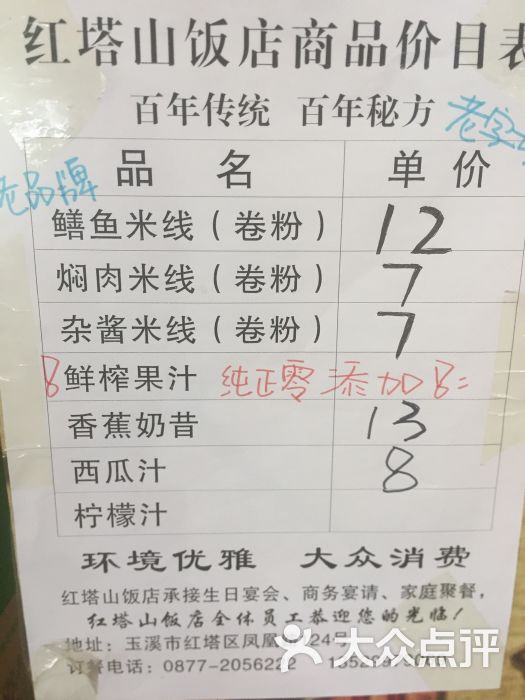 红塔山饭店商品价目表
百年传统 百年秘方 老字
老品牌
品 名 单 价
鳝鱼米线（卷粉） 12
焖肉米线（卷粉） 7
杂酱米线（卷粉） 7
8 鲜榨果汁 纯正零添加 8=
香蕉奶昔 13
西瓜汁 8
柠檬汁
环境优雅 大众消费
红塔山饭店承接生日宴会、商务宴请、家庭聚餐，
红塔山饭店全体员工恭迎您的光临！
地址：玉溪市红塔区凤凰 24号
订餐电话：0877-2056222
大众点评